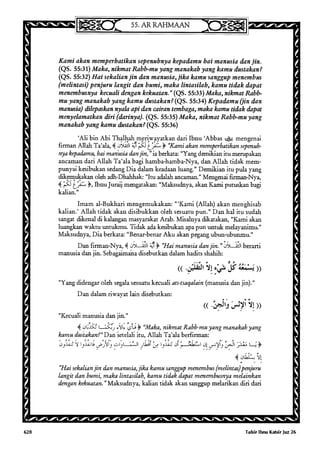 55. AR RAHMAAN
Kami akan memperhatikan sepenuhnya kepadamu hai manusia dan jin.
(QS. 55:31) Maka, nikmat Rabb-mu yang manakah yang kamu dustakan?
(QS. 55:32) Hai sekalian jin dan manusia, jika kamu sanggup menembus
(melintasi) penjuru langit dan bumi, maka lintasilah, kamu tidak dapat
menembusnya kecuali dengan kekuatan." (QS. 55:33) Maka, nikmat Rabb-
mu yang manakah yang kamu dustakan? (QS. 55:34) Kepadamu (jin dan
manusia) dilepaskan nyala api dan cairan tembaga, maka kamu tidak dapat
menyelamatkan diri (darinya). (QS. 55:35) Maka, nikmat Rabb-mu yang
manakah yang kamu dustakan? (QS. 55:36)
'Ali bin Abi Thalhah meriwayatkan dari Ibnu 'Abbas mengenai
firman Allah Ta'ala, ﴾ سَنَفْرُغُ لَكُمْ أَيُّهَ الثَّقَلَانِ ﴿ "Kami akan memperhatikan sepenuh-
nya kepadamu, hai manusia dan jin," ia berkata: "Yang demikian itu merupakan
ancaman dari Allah Ta'ala bagi hamba-hamba-Nya, dan Allah tidak mem-
punyai kesibukan sedang Dia dalam keadaan luang." Demikian itu pula yang
dikemukakan oleh adh-Dhahhak: "Itu adalah ancaman." Mengenai firman-Nya,
﴾ سَنَفْرُغُ لَكُمْ ﴿, Ibnu Juraij mengatakan: "Maksudnya, akan Kami putuskan bagi
kalian."
Imam al-Bukhari mengemukakan: "'Kami (Allah) akan menghisab
kalian.' Allah tidak akan disibukkan oleh sesuatu pun." Dan hal itu sudah
sangat dikenal di kalangan masyarakat Arab. Misalnya dikatakan, "Kami akan
luangkan waktu untukmu. Tidak ada kesibukan apa pun untuk melayanimu."
Maksudnya, Dia berkata: "Benar-benar Aku akan pegang ubun-ubunmu."
Dan firman-Nya, ﴾ أَيُّهَ الثَّقَلَانِ ﴿ "Hai manusia dan jin." الثَّقَلَانِ berarti
manusia dan jin. Sebagaimana disebutkan dalam hadits shahih:
(( يَسْمَعُهُ كُلُّ شَيْءٍ إِلَّا الثَّقَلَيْنِ. ))
"Yang didengar oleh segala sesuatu kecuali ats-tsaqalain (manusia dan jin)."
Dan dalam riwayat lain disebutkan:
(( إِلَّا الْإِنْسَ وَالْجِنَّ. ))
"Kecuali manusia dan jin."
﴾ فَبِأَيِّ آلَاءِ رَبِّكُمَا تُكَذِّبَانِ ﴿ "Maka, nikmat Rabb-mu yang manakah yang
kamu dustakan?" Dan setelah itu, Allah Ta'ala berfirman:
﴾ يَا مَعْشَرَ الْجِنِّ وَالْإِنْسِ إِنِ اسْتَطَعْتُمْ أَنْ تَنْفُذُوا مِنْ أَقْطَارِ السَّمَاوَاتِ وَالْأَرْضِ فَانْفُذُوا لَا تَنْفُذُونَ
إِلَّا بِسُلْطَانٍ ﴿
"Hai sekalian jin dan manusia, jika kamu sanggup menembus (melintasi) penjuru
langit dan bumi, maka lintasilah, kamu tidak dapat menembusnya melainkan
dengan kekuatan." Maksudnya, kalian tidak akan sanggup melarikan diri dari
628
Tafsir Ibnu Katsir Juz 26